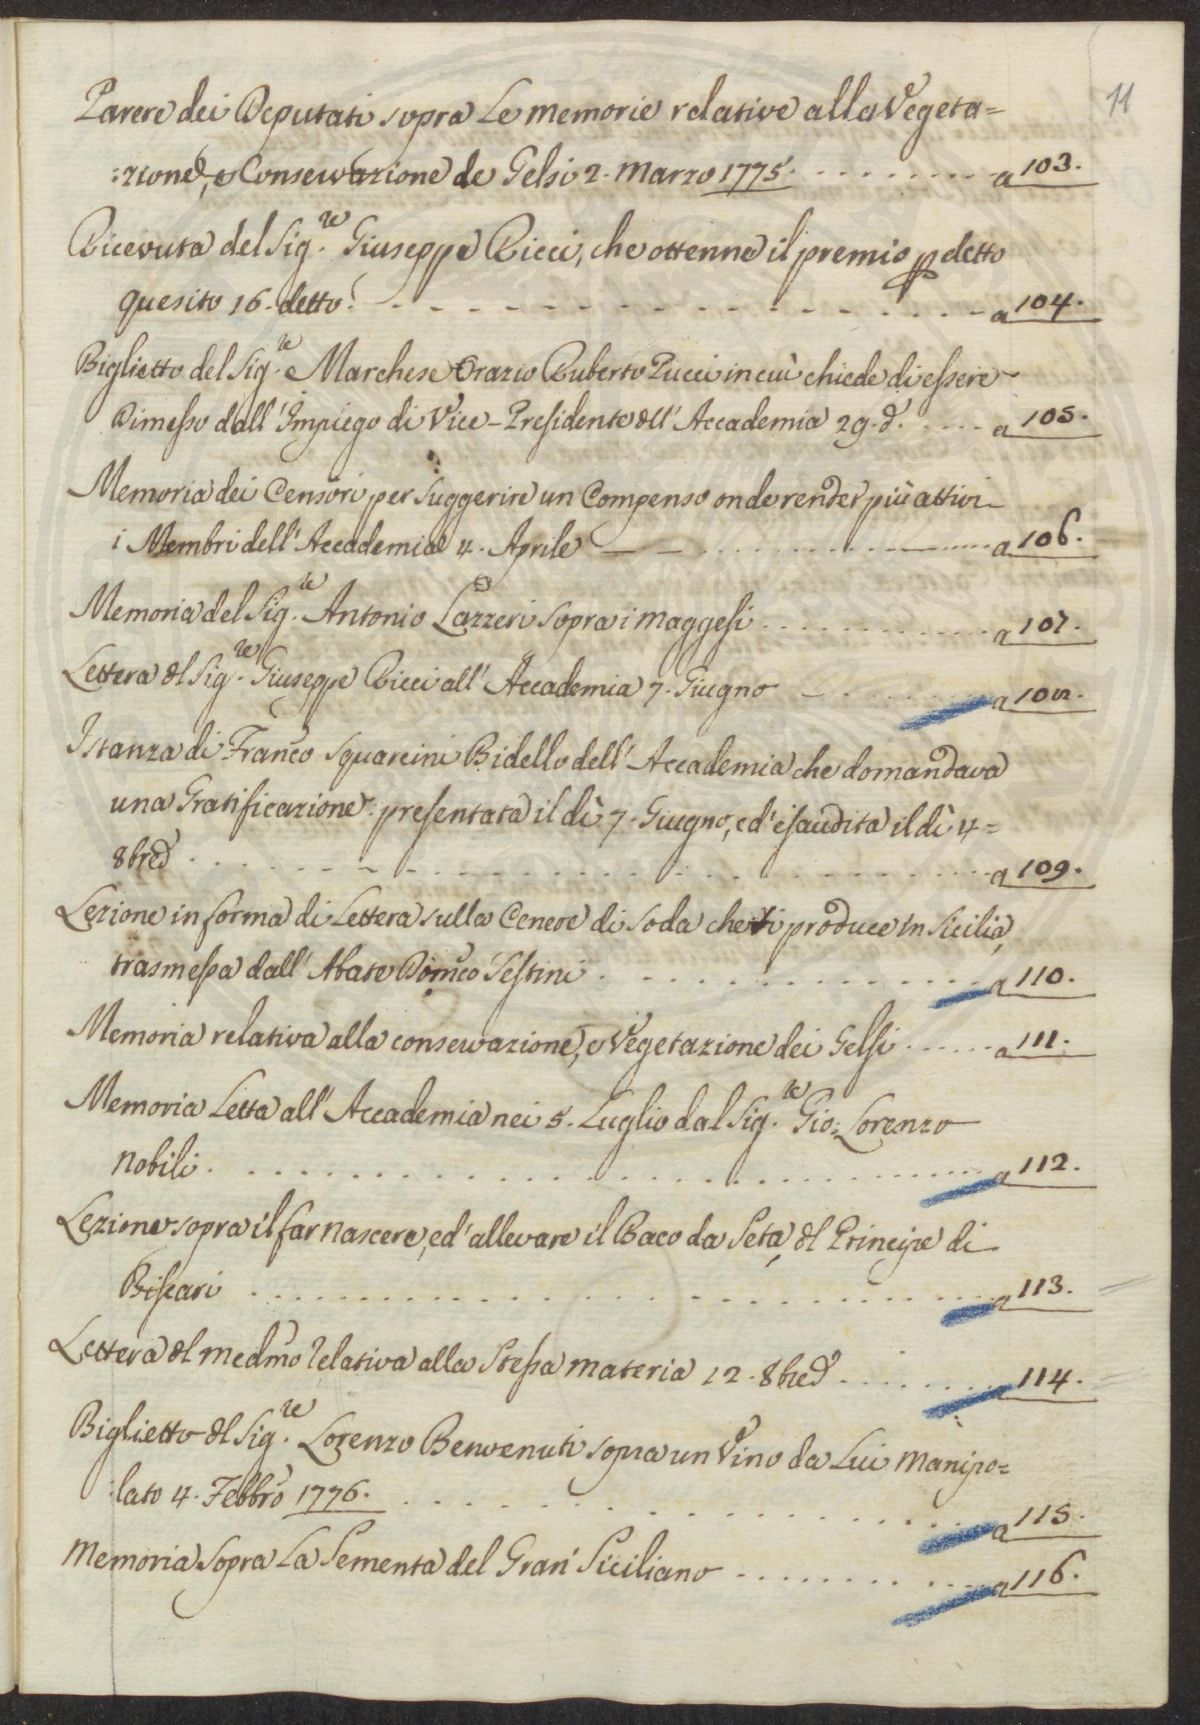 11
Parere dei Deputati sopra Le memorie relative alla Vegeta=
:zione, e Conservazione de Gelsi 2. Marzo 1775. a 103.
Ricevuta del Sig.re Giuseppe Ricci, che ottenne il premio p detto
quesito 16. detto. a 104.
Biglietto del Sig.re Marchese Orazio Ruberto Pucci in cui chiede di essere
Dimesso dall' Impiego di Vice-Presidente dell' Accademia 29. d.o a 105.
Memoria dei Censori per suggerire un Compenso onde render più attivi
i Membri dell' Accademia 4. Aprile a 106.
Memoria del Sig.re Antonio Lazzeri sopra i maggesi a 107.
Lettera del Sig.re Giuseppe Ricci all' Accademia 7. Giugno a 108.
Istanza di Franco Squarcini Bidello dell' Accademia che domandava
una Gratificazione presentata il dì 7. Giugno, ed esaudita il dì 4=
8bre a 109.
Lezione in forma di Lettera sulla Cenere di Soda che si produce in Sicilia,
trasmessa dall' Abate Domco Sestini a 110.
Memoria relativa alla conservazione, e Vegetazione dei Gelsi a 111.
Memoria Letta all' Accademia nei 5. Luglio dal Sig.re Gio: Lorenzo
Nobili. a 112.
Lezione sopra il far nascere, ed' allevare il Baco da Seta, del Principe di
Biscari a 113.
Lettera del medmo relativa alla Stessa materia 12. 8bre a 114.
Biglietto del Sig.re Lorenzo Benvenuti sopra un Vino da Lui manipo=
:lato 4. Febbro 1776. a 115.
Memoria sopra La Sementa del Gran' Siciliano a 116.